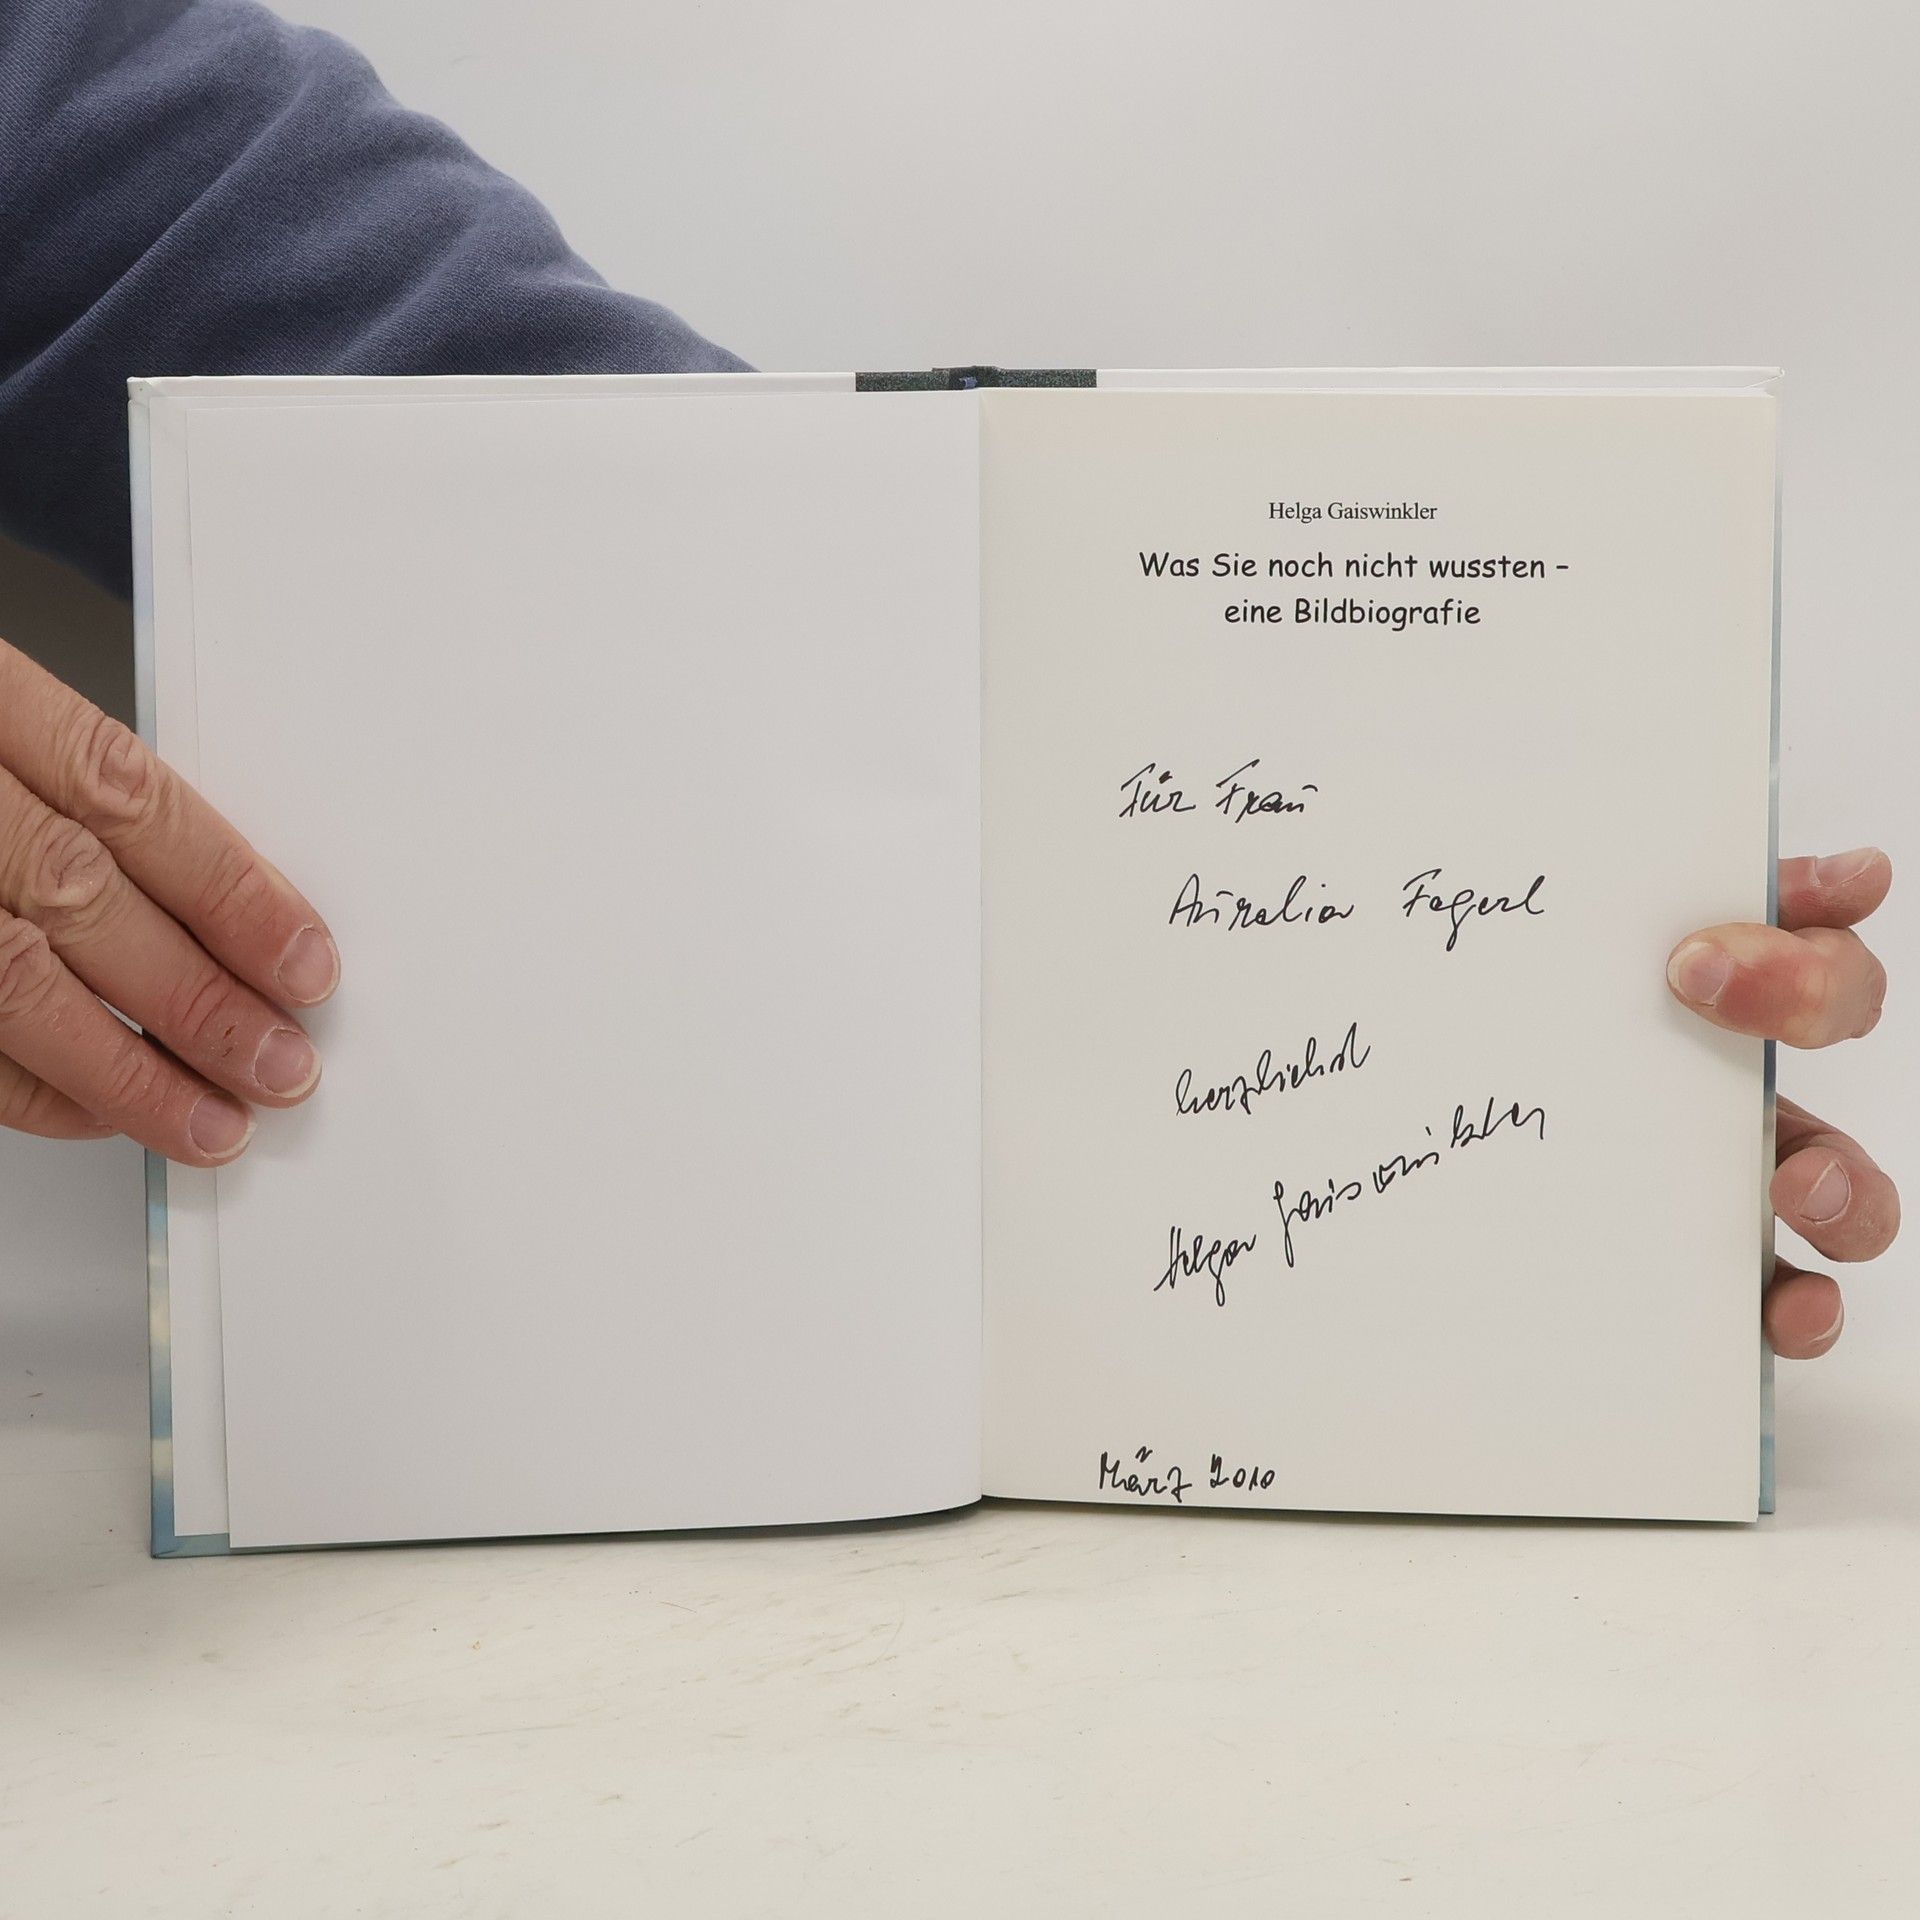 Helga Gaiswinkler
Was Sie noch nicht wussten –
eine Bildbiografie
Für Frau
Auralia Fagerl
herzlichst
Helga Gaiswinkler
März 2010